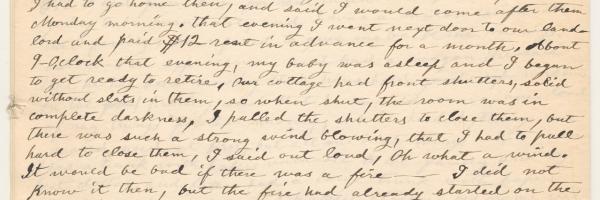 I had to go home then, and said I would come after them
Monday morning. that evening I went next door to our land-
lord and paid $12 rent in advance for a month. About
9-Oclock that evening, my baby was asleep and I began
to get ready to retire, Our cottage had front shutters, solid
without slats in them, so when shut, the room was in
complete darkness. I pulled the shutters to close them, but
there was such a strong wind blowing, that I had to pull
hard to close them, I said out loud, Oh what a wind.
It would be bad if there was a fire — I did not
Know it then, but the fire had already started on the